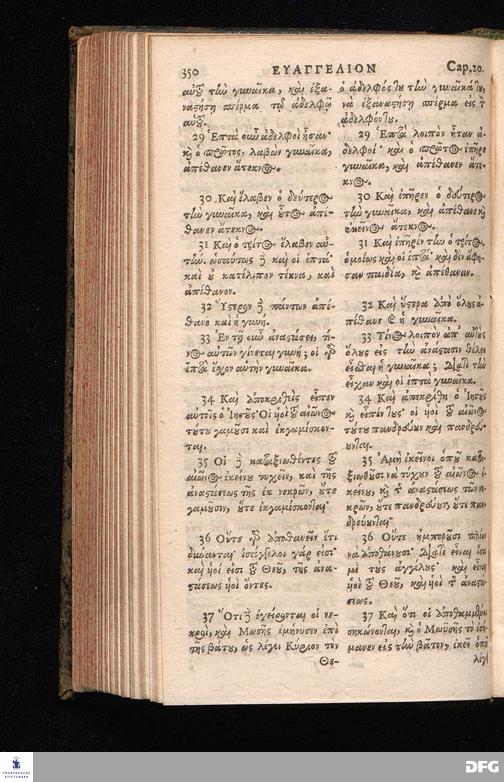 350 ΕΥΑΓΓΕΛΙΟΝ Cap.20.
αὐτοῦ τὴν γυναῖκα, καὶ ἐξα-
ναστήσῃ σπέρμα τῷ ἀδελφῷ
αὐτοῦ.
29 Ἑπτὰ οὖν ἀδελφοὶ ἦσαν·
κỳ ὁ πρῶτος, λαβὼν γυναῖκα,
ἀπέθανεν ἄτεκνος.
30 Καὶ ἔλαβεν ὁ δεύτερος
τὴν γυναῖκα, καὶ οὗτος ἀπέ-
θανεν ἄτεκνος.
31 Καὶ ὁ τρίτος ἔλαβεν αὐ-
τήν. ὡσαύτως δὲ καὶ οἱ ἑπτά·
καὶ οὐ κατέλιπον τέκνα, καὶ
ἀπέθανον.
32 Ὕστερον δὲ πάντων ἀπέ-
θανε καὶ ἡ γυνή.
33 Ἐν τῇ οὖν ἀναστάσει, τί-
νος αὐτῶν γίνεται γυνή; οἱ γὰρ
ἑπτὰ ἔσχον αὐτὴν γυναῖκα.
34 Καὶ ἀποκριθεὶς εἶπεν
αὐτοῖς ὁ Ἰησοῦς· Οἱ υἱοὶ τοῦ αἰῶνος
τούτου γαμοῦσι καὶ ἐκγαμίσκον-
ται.
35 Οἱ δὲ καταξιωθέντες τοῦ
αἰῶνος ἐκείνου τυχεῖν, καὶ τῆς
ἀναστάσεως τῆς ἐκ νεκρῶν, οὔτε
γαμοῦσιν, οὔτε ἐκγαμίσκονται·
36 Οὔτε γὰρ ἀποθανεῖν ἔτι
δύνανται· ἰσάγγελοι γάρ εἰσι·
καὶ υἱοί εἰσι τοῦ Θεοῦ, τῆς ἀνα-
στάσεως υἱοὶ ὄντες.
37 Ὅτι δὲ ἐγείρονται οἱ νε-
κροὶ, καὶ Μωσῆς ἐμήνυσεν ἐπὶ
τῆς βάτου, ὡς λέγει Κύριον τὸν
Θε-
ὁ ἀδελφός του τὴν γυναῖκά του,
νὰ ἐξαναστήσῃ σπέρμα εἰς τὸν
ἀδελφόν του.
29 Ἑπτὰ λοιπὸν ἦταν ἀ-
δελφοί· καὶ ὁ πρῶτος ἐπῆρε
γυναῖκα, καὶ ἀπέθανεν ἄτε-
κνος.
30 Καὶ ἐπῆρεν ὁ δεύτερος
τὴν γυναῖκα, καὶ ἀπέθανε κỳ
ἐκεῖνος ἄτεκνος.
31 Καὶ ἐπῆρέν την ὁ τρίτος,
ὁμοίως καὶ οἱ ἑπτά· καὶ δὲν ἄφη-
σαν παιδία, κỳ ἀπέθαναν.
32 Καὶ ὕστερα ἀπὸ ὅλους ἀ-
πέθανε καὶ ἡ γυναῖκα.
33 Τίνος λοιπὸν ἀπ' αὐτοὺς
ὅλους εἰς τὴν ἀνάστασιν θέλει
εἶσται ἡ γυναῖκα; διατὶ τὴν
εἶχαν καὶ οἱ ἑπτὰ γυναῖκα.
34 Καὶ ἀπεκρίθη ὁ Ἰησοῦς
κỳ εἶπέν τους· οἱ υἱοὶ τοῦ αἰῶνος
τούτου πανδρεύουν καὶ πανδρεύ-
ονται.
35 Ἀμὴ ἐκεῖνοι ὁποῦ κατα-
ξιωθοῦσι νὰ τύχουν τοῦ αἰῶνος ἐ-
κείνου, κỳ τῆς ἀναστάσεως τῶν νε-
κρῶν, οὔτε πανδρεύουν, οὔτε παν-
δρεύονται·
36 Οὔτε ἠμποροῦσι πλέον
νὰ ἀποθάνουσι· διατὶ εἶναι ἴσια
μὲ τοὺς ἀγγέλους· καὶ εἶναι
υἱοὶ τοῦ Θεοῦ, καὶ υἱοὶ τῆς ἀναστά-
σεως.
37 Καὶ ὅτι οἱ ἀποθαμμένοι
σηκώνονται, κỳ ὁ Μωϋσῆς τὸ ἐσή-
μανεν εἰς τὴν βάτον, ἐκεῖ ὁποῦ
λέγει
FRANCKESCHE STIFTUNGEN
DFG